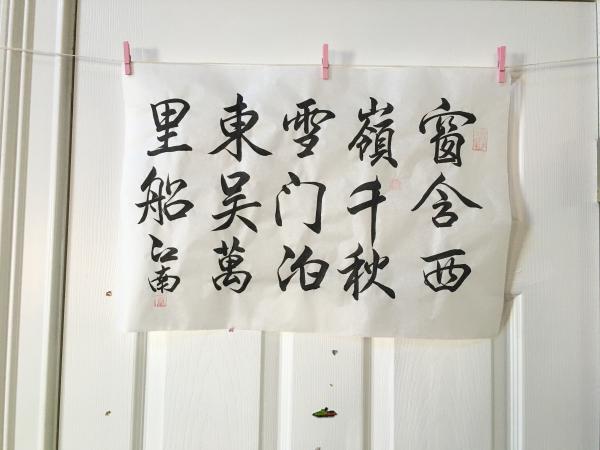 窗含西
嶺千秋
雪门泊
東吴萬
里船
江南